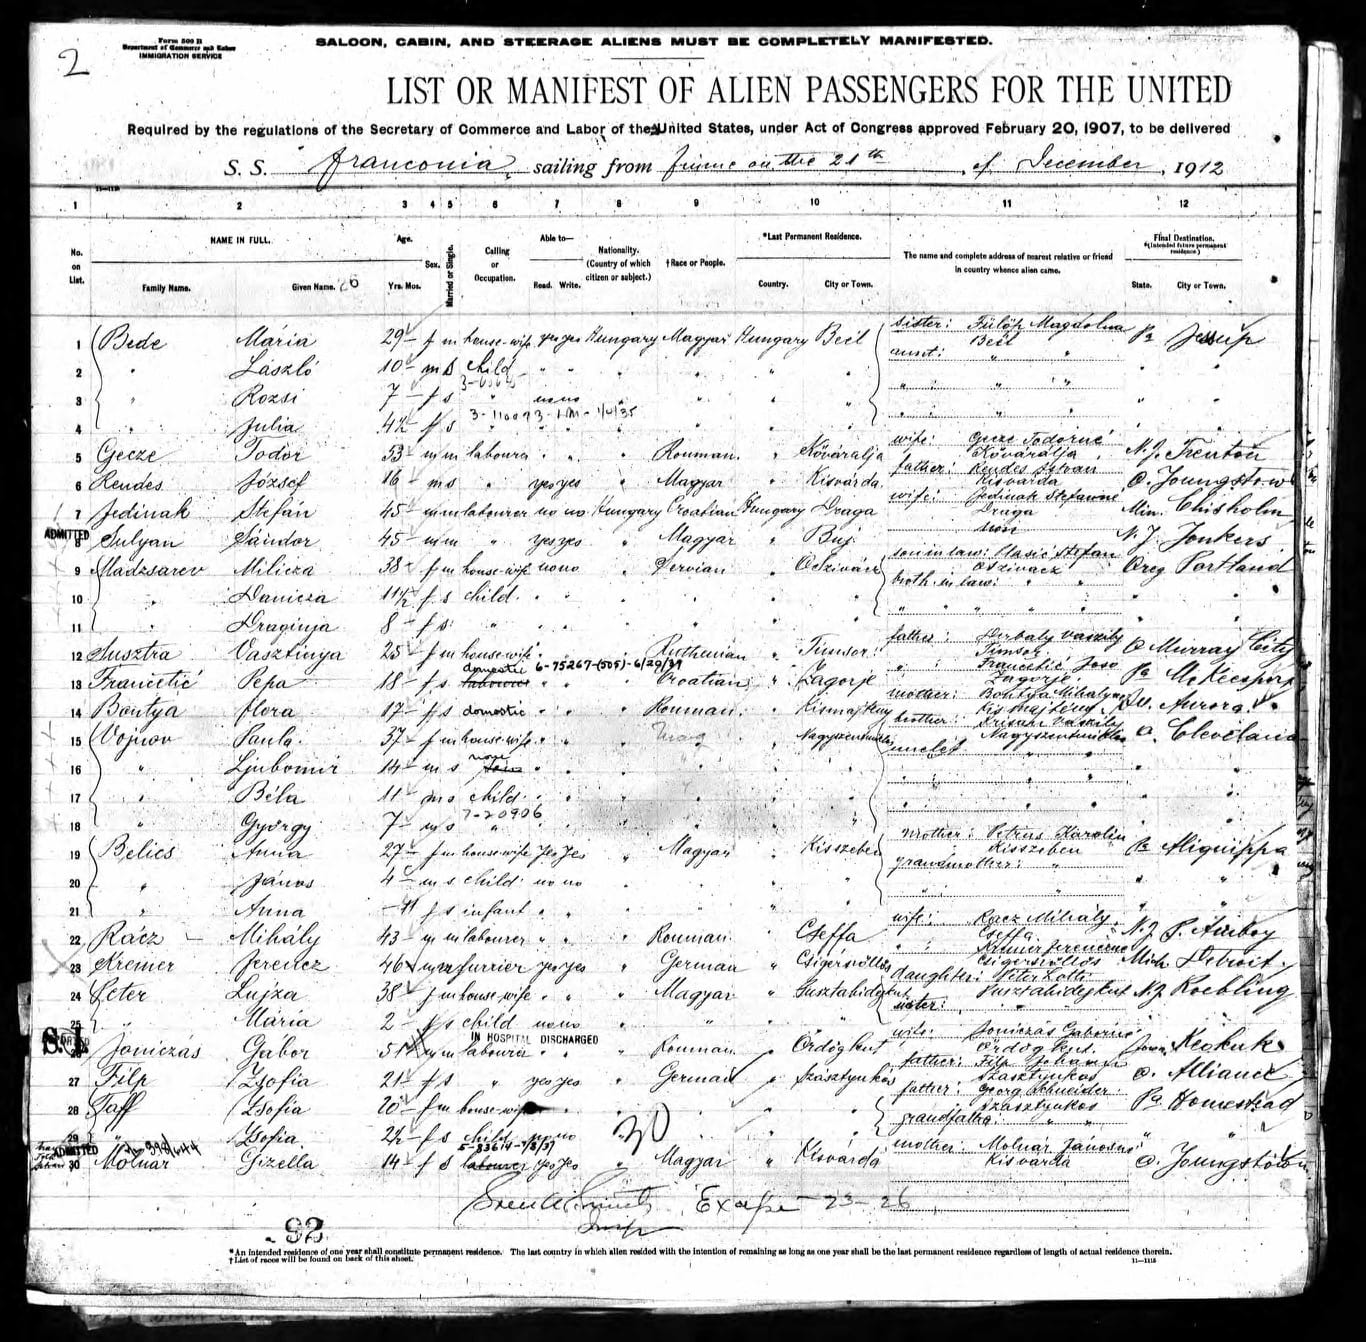 2
Form 500 B
Department of Commerce and Labor
IMMIGRATION SERVICE
SALOON, CABIN, AND STEERAGE ALIENS MUST BE COMPLETELY MANIFESTED.
LIST OR MANIFEST OF ALIEN PASSENGERS FOR THE UNITED
Required by the regulations of the Secretary of Commerce and Labor of the United States, under Act of Congress approved February 20, 1907, to be delivered
S. S. Franconia, sailing from Fiume on the 21th, of December, 1912
1 2 3 4 5 6 7 8 9 10 11 12
No. on List.
NAME IN FULL.
Family Name. Given Name.
Age.
Yrs. Mos.
Sex.
Married or Single.
Calling or Occupation.
Able to—
Read. Write.
Nationality. (Country of which citizen or subject.)
†Race or People.
*Last Permanent Residence.
Country. City or Town.
The name and complete address of nearest relative or friend in country whence alien came.
Final Destination.
*(Intended future permanent residence.)
State. City or Town.
1 Bede Mária 29 f m house-wife yes yes Hungary Magyar Hungary Beél sister: Fülöp Magdolna Beél Pa Jessup
2 " László 10 m s child " " " " " " aunt: " " " "
3 " Rozsi 7 f s " no no " " " " " " " "
4 " Julia 4½ f s " " " " " " " " " " "
5 Gecze Todor 53 m m labourer " " " Rouman. " Kőváralja wife: Gecze Todorné Kőváralja N.J. Trenton
6 Rendes József 16 m s " yes yes " Magyar " Kisvárda father: Rendes Istvan Kisvárda O. Youngstown
7 Jedinak Stefan 45 m m labourer no no Hungary Croatian Hungary Draga wife: Jedinak Stefanné Draga Min. Chisholm
ADMITTED
8 Sulyan Sándor 45 m m " yes yes " Magyar " Buj N.J. Yonkers
9 Madzsarev Milicza 38 f m house-wife no no " Servian " Oszivácz son in law: Stefan Oszivacz Oreg Portland
10 " Danicza 11½ f s child " " " " " " broth. in law: " " " "
11 " Draginja 8 f s " " " " " " " " " " " "
12 Susztra Vasztinya 25 f m house-wife " " " Ruthenian " Timsor father: Vaszily Timsor O Murray City
6-75267-(505)-6/20/39
13 Francetić Pepa 18 f s domestic " " " Croatian " Zagorje " : Francetić Josó Zagorje Pa McKeesport
14 Bontya Flora 17 f s domestic " " " Rouman. " Kismajtény mother: Bontya Mihalyné Kismajtény Aurora
15 Vojnov Paula 37 f m house-wife " " " " brother: Vaszily O. Cleveland
16 " Ljubomir 14 m s none " " " " " " uncle: " " " "
17 " Béla 11 m s child " " " " " " " " " "
7-20906
18 " György 7 m s " " " " " " "
19 Belics Anna 27 f m house-wife yes yes " Magyar " Kisszeben mother: Petrus Karolin Kisszeben Pa Aliquippa
20 " János 4 m s child no no " " " " grandmother: " " "
21 " Anna -11 f s infant " " " " " " " " " "
22 Rácz Mihály 43 m m labourer " " " Rouman. " Cseffa wife: Racz Mihály Cseffa N.J. P. Amboy
23 Kremer Ferencz 46 m m furrier yes yes " German " " : Kremer Ferenczné Mich. Detroit.
24 Péter Lujza 38 f m house-wife " " " Magyar " Pusztahidegkut daughter: Péter Lotti Pusztahidegkut N.J. Roebling
25 " Mária 2 f s child no no " " " " sister: " " " "
S.I.
IN HOSPITAL DISCHARGED
26 Joniczás Gabor 51 m m labourer " " " Rouman. " Ördögkut wife: Joniczás Gaborné Ördögkut. Iowa Keokuk
27 Filp Zsofia 21 f s " yes yes " German " Szásztyukos father: Filp Johann Szásztyukos O. Alliance
28 Taff Zsofia 20 f m house-wife " " " " " father: Georg Schneider Szásztyukos Pa Homestead
29 " Zsofia 2½ f s child no no " " " " grandfather: " " " "
30
5-83614-4/8/37
ADMITTED
30 Molnár Gizella 14 f s labourer yes yes " Magyar " Kisvárda mother: Molnár Jánosné Kisvárda O. Youngstown
23-26
92
*An intended residence of one year shall constitute permanent residence. The last country in which alien resided with the intention of remaining as long as one year shall be the last permanent residence regardless of length of actual residence therein.
†List of races will be found on back of this sheet.
11—1115